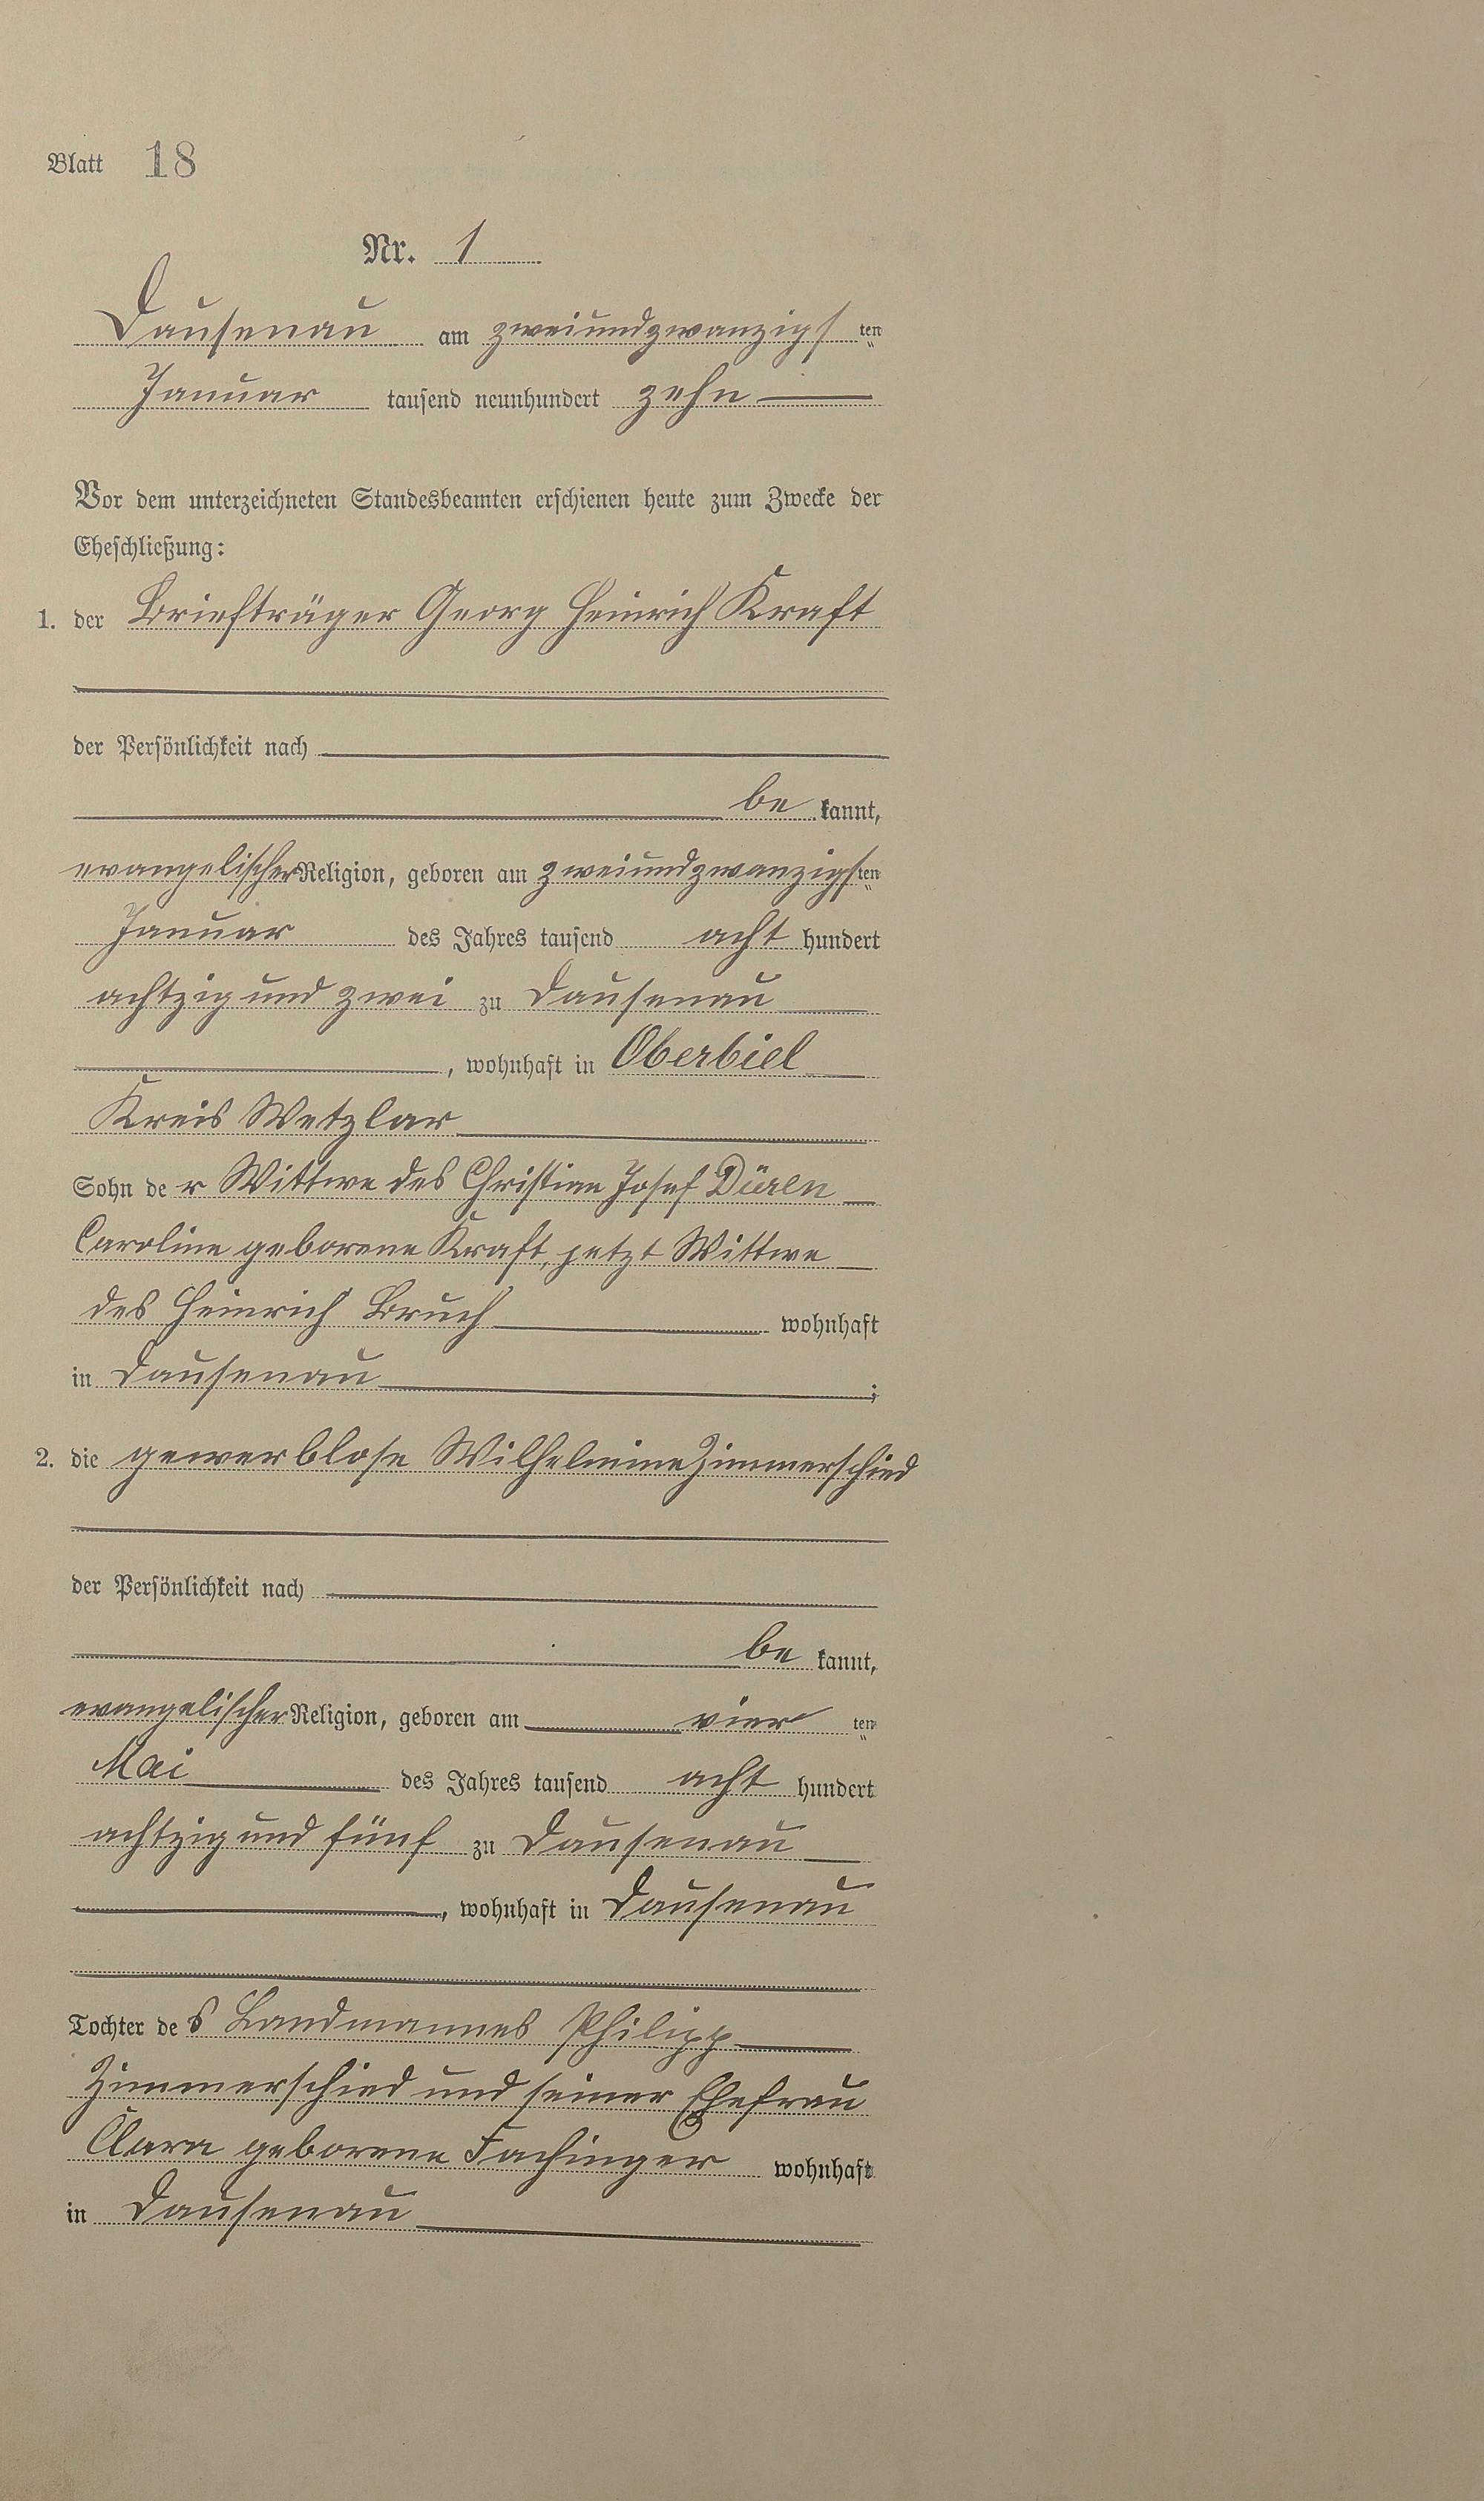 Blatt 18
Nr. 1
Dausenau am zweiundzwanzigsten
Januar tausend neunhundert zehn
Vor dem unterzeichneten Standesbeamten erschienen heute zum Zwecke der
Eheschließung:
1. der Briefträger Georg Heinrich Kraft
der Persönlichkeit nach
be kannt,
evangelischer Religion, geboren am zweiundzwanzigsten
Januar des Jahres tausend acht hundert
achtzig und zwei zu Dausenau
, wohnhaft in Oberbiel
Kreis Wetzlar
Sohn der Wittwe des Christian Josef Düren
Caroline geborene Kraft, jetzt Wittwe
des Heinrich Bruch wohnhaft
in Dausenau ;
2. die gewerblose Wilhelmine Zimmerschied
der Persönlichkeit nach
be kannt,
evangelischer Religion, geboren am vierten
Mai des Jahres tausend acht hundert
achtzig und fünf zu Dausenau
, wohnhaft in Dausenau
Tochter des Landmannes Philipp
Zimmerschied und seiner Ehefrau
Clara geborene Fachinger wohnhaft
in Dausenau